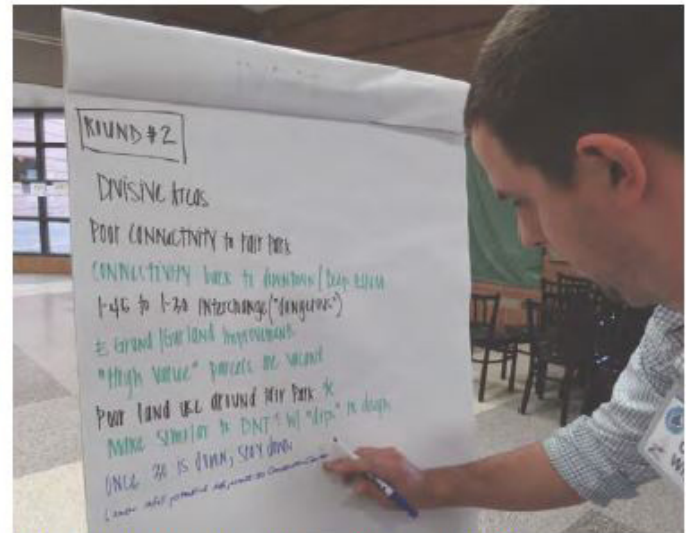 ROUND #2
DIVISIVE AREAS
POOR CONNECTIVITY to FAIR PARK
CONNECTIVITY back to downtown / Deep Ellum
I-45 to I-30 INTERCHANGE ("dangerous")
E Grand / Garland Improvement
"High Value" parcels are vacant
Poor land use around Fair Park *
Make similar to DNT w/ "dips" in design
ONCE 30 is down, stay down